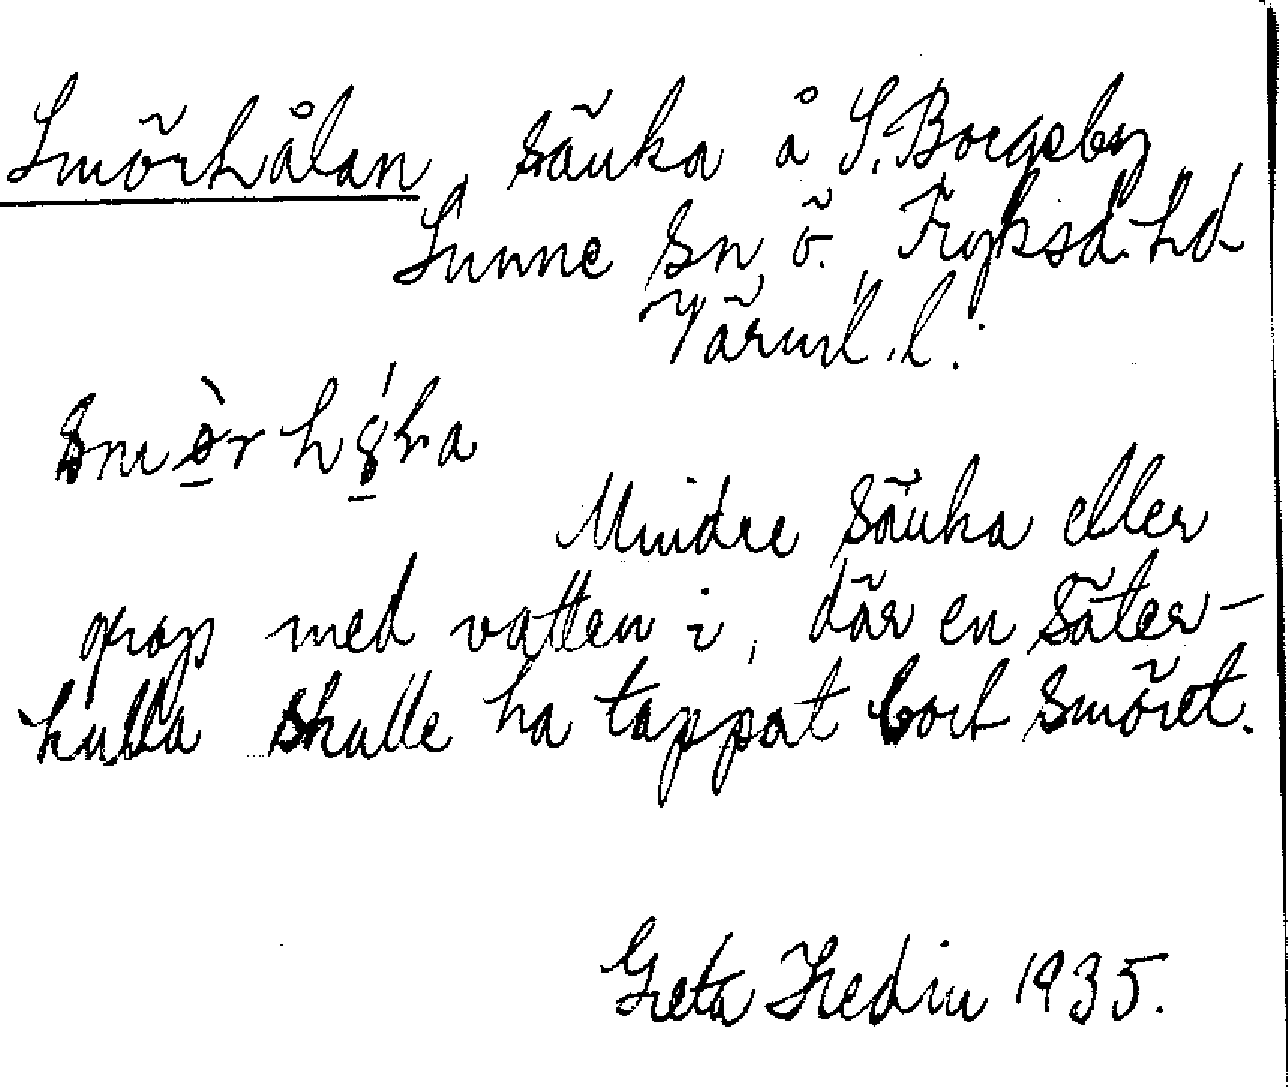 Smörhålan, sänka å S. Borgeby
Sunne sn, ö. Fryksd. hd
Värml. l.
Mindre sänka eller
grop med vatten i, där en säter-
kulla skulle ha tappat bort smöret.
Greta Hedin 1935.